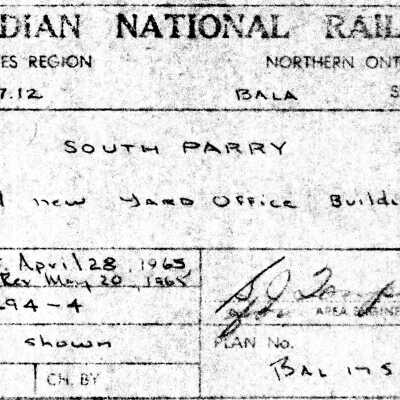 DIAN NATIONAL RAIL
ES REGION NORTHERN ONT
7.12 BALA S
SOUTH PARRY
new YARD OFFICE Buildi
April 28, 1965
Rev May 20, 1965
294-4
AREA ENGINE
shown PLAN No.
CH. BY BAL 17 5